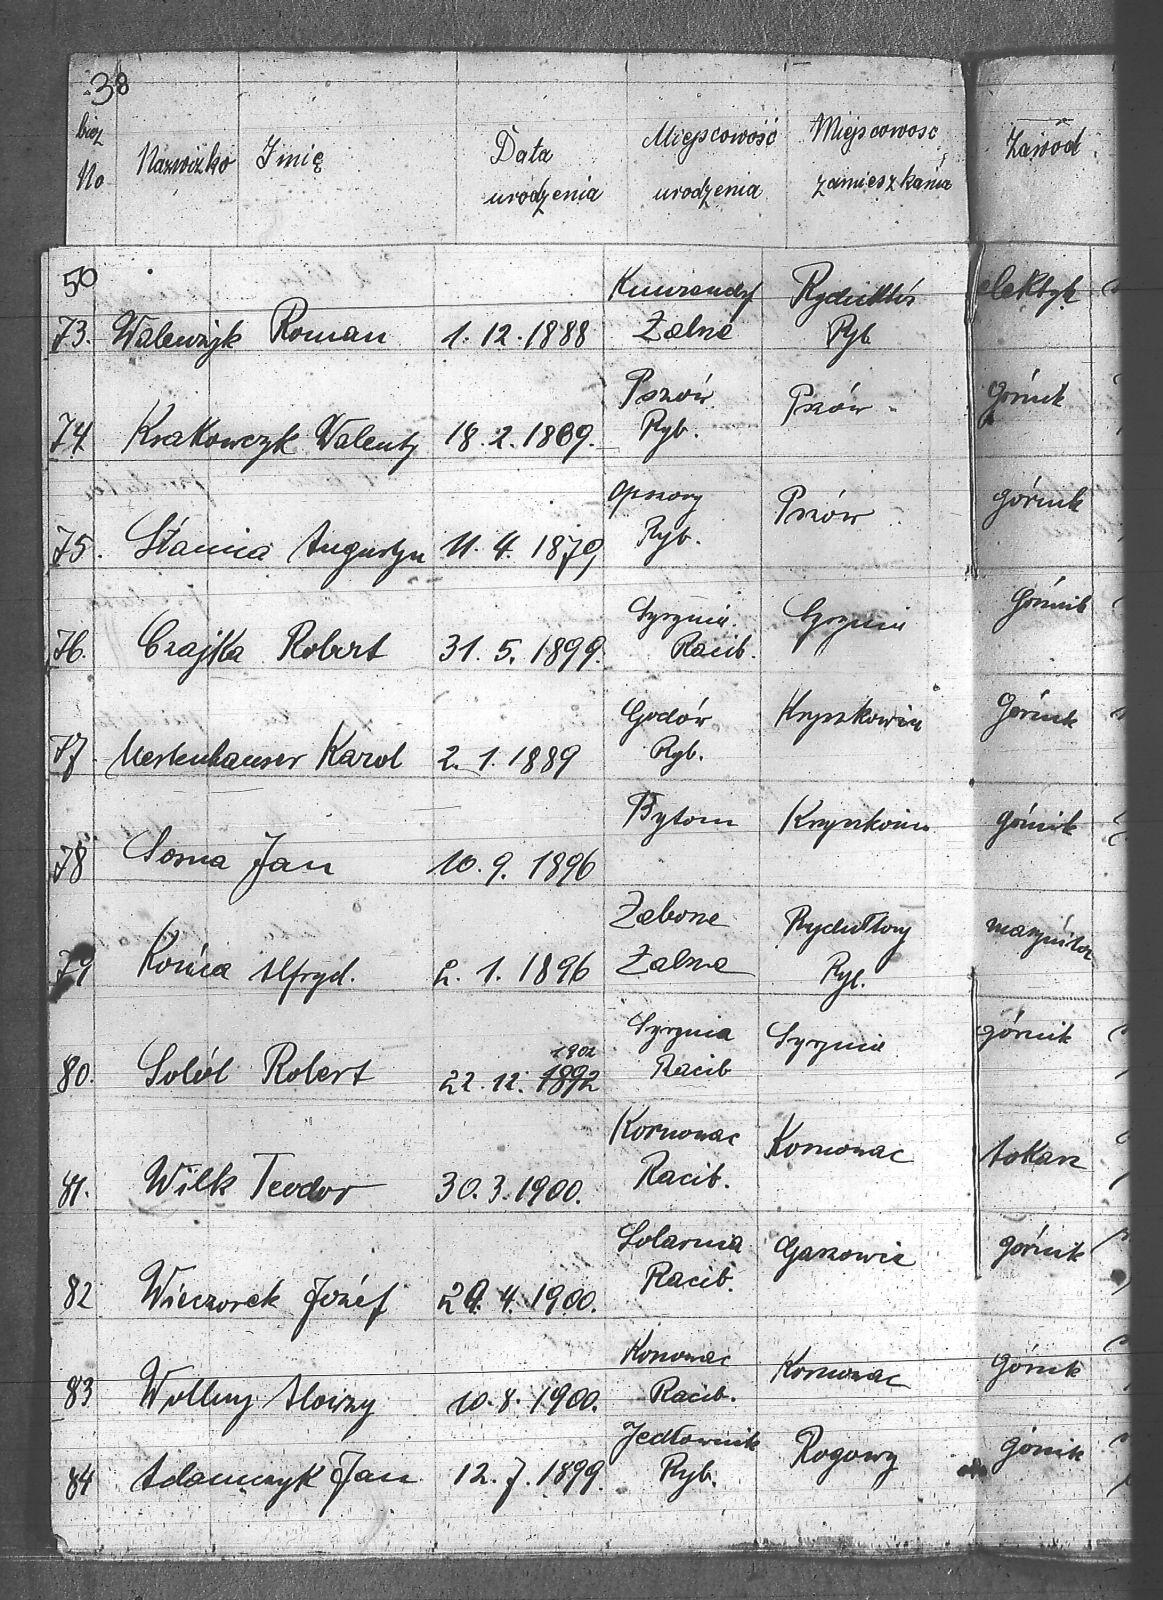 38
bież No Nazwizko Imię Data urodzenia Miejscowość urodzenia Miejscowość zamieszkania Zawod
50
73. Roman 1.12.1888 Zabrze Rydułtów Ryb elektryk
74 Krakowczyk Walenty 18.2.1869. Pszów Ryb. Pszów górnik
75. Stania Augustyn 11.4.1879, Ryb. Pszów górnik
76. Czajka Robert 31.5.1899. Syrynia Racib. Syrynia górnik
77. Karol 2.1.1889 Godów Ryb. Krzyszkowice górnik
78 Sosna Jan 10.9.1896 Bytom Krzyszkowic górnik
79 Końca Alfryd. 2.1.1896 Zaborze Zabrze Rydułtowy Ryb. maszynista
80. Robert 22.12. 1892 1902 Syrynia Racib Syrynia górnik
81. Wilk Teodor 30.3.1900. Kornowac Racib. Kornowac tokarz
82 Wieczorek Józef 29.4.1900. Solarnia Racib. Gaszowic górnik
83 Wollny Alojzy 10.8.1900. Kornowac Racib. Kornowac górnik
84 Adamczyk Jan 12.7.1899. Jedłownik Ryb. Rogowy górnik